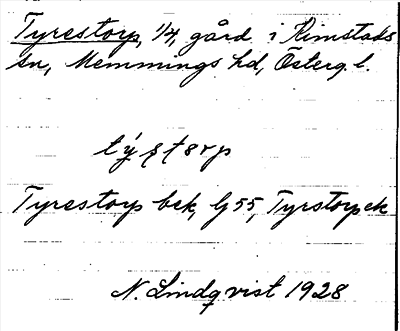 Tyrestorp, 1/4, gård i Rimstads
sn, Memmings hd, Österg. l.
Tyrestorp bek, G 55, Tyrstorp ek
N. Lindqvist 1928